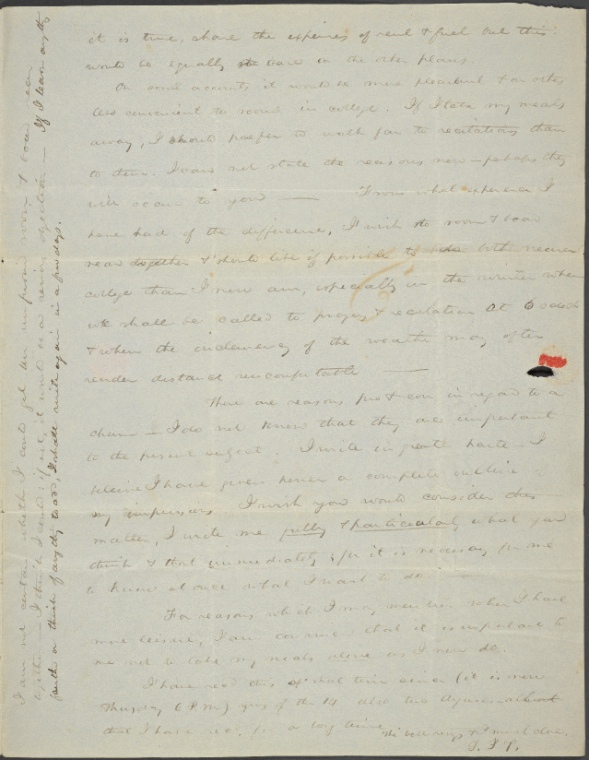 it is true, share the expenses of rent & fuel but this
would be equally the case on the other plans.
On some accounts it would be more pleasant &
less convenient to room in college. If I take my meals
away, I should prefer to walk far to recitations than
to them. I can not state the reasons now — perhaps they
will occur to you — From what experience I
have had of the difference, I wish to room & board
near together & should like if possible to be both nearer
college than I now am, especially in the winter when
we shall be called to prayers & recitation at 6 o'clock
& when the inclemency of the weather may often
render distance uncomfortable —
There are reasons pro & con in regard to a
chum — I do not know that they are important
to the present subject. I write in great haste — I
believe I have given you a complete outline of
my impressions. I wish you would consider this
matter, & write me fully & particularly what you
think & that immediately, for it is necessary for me
to know at once what I want to do. —
For reasons which I may mention when I have
more leisure, I am convinced that it is important to
me not to take my meals alone as I now do.
I have read this of that time since (it is now
Thursday 6 P.M.) yrs of the 14 also two
that I have for a long time. The bell rings & I must close.
I am not certain whether I could get an unfurnished room & board near
together — I think I could; if not, it would be a serious objection — If I learn any thing
further or think of anything to add, I shall write again in a few days.